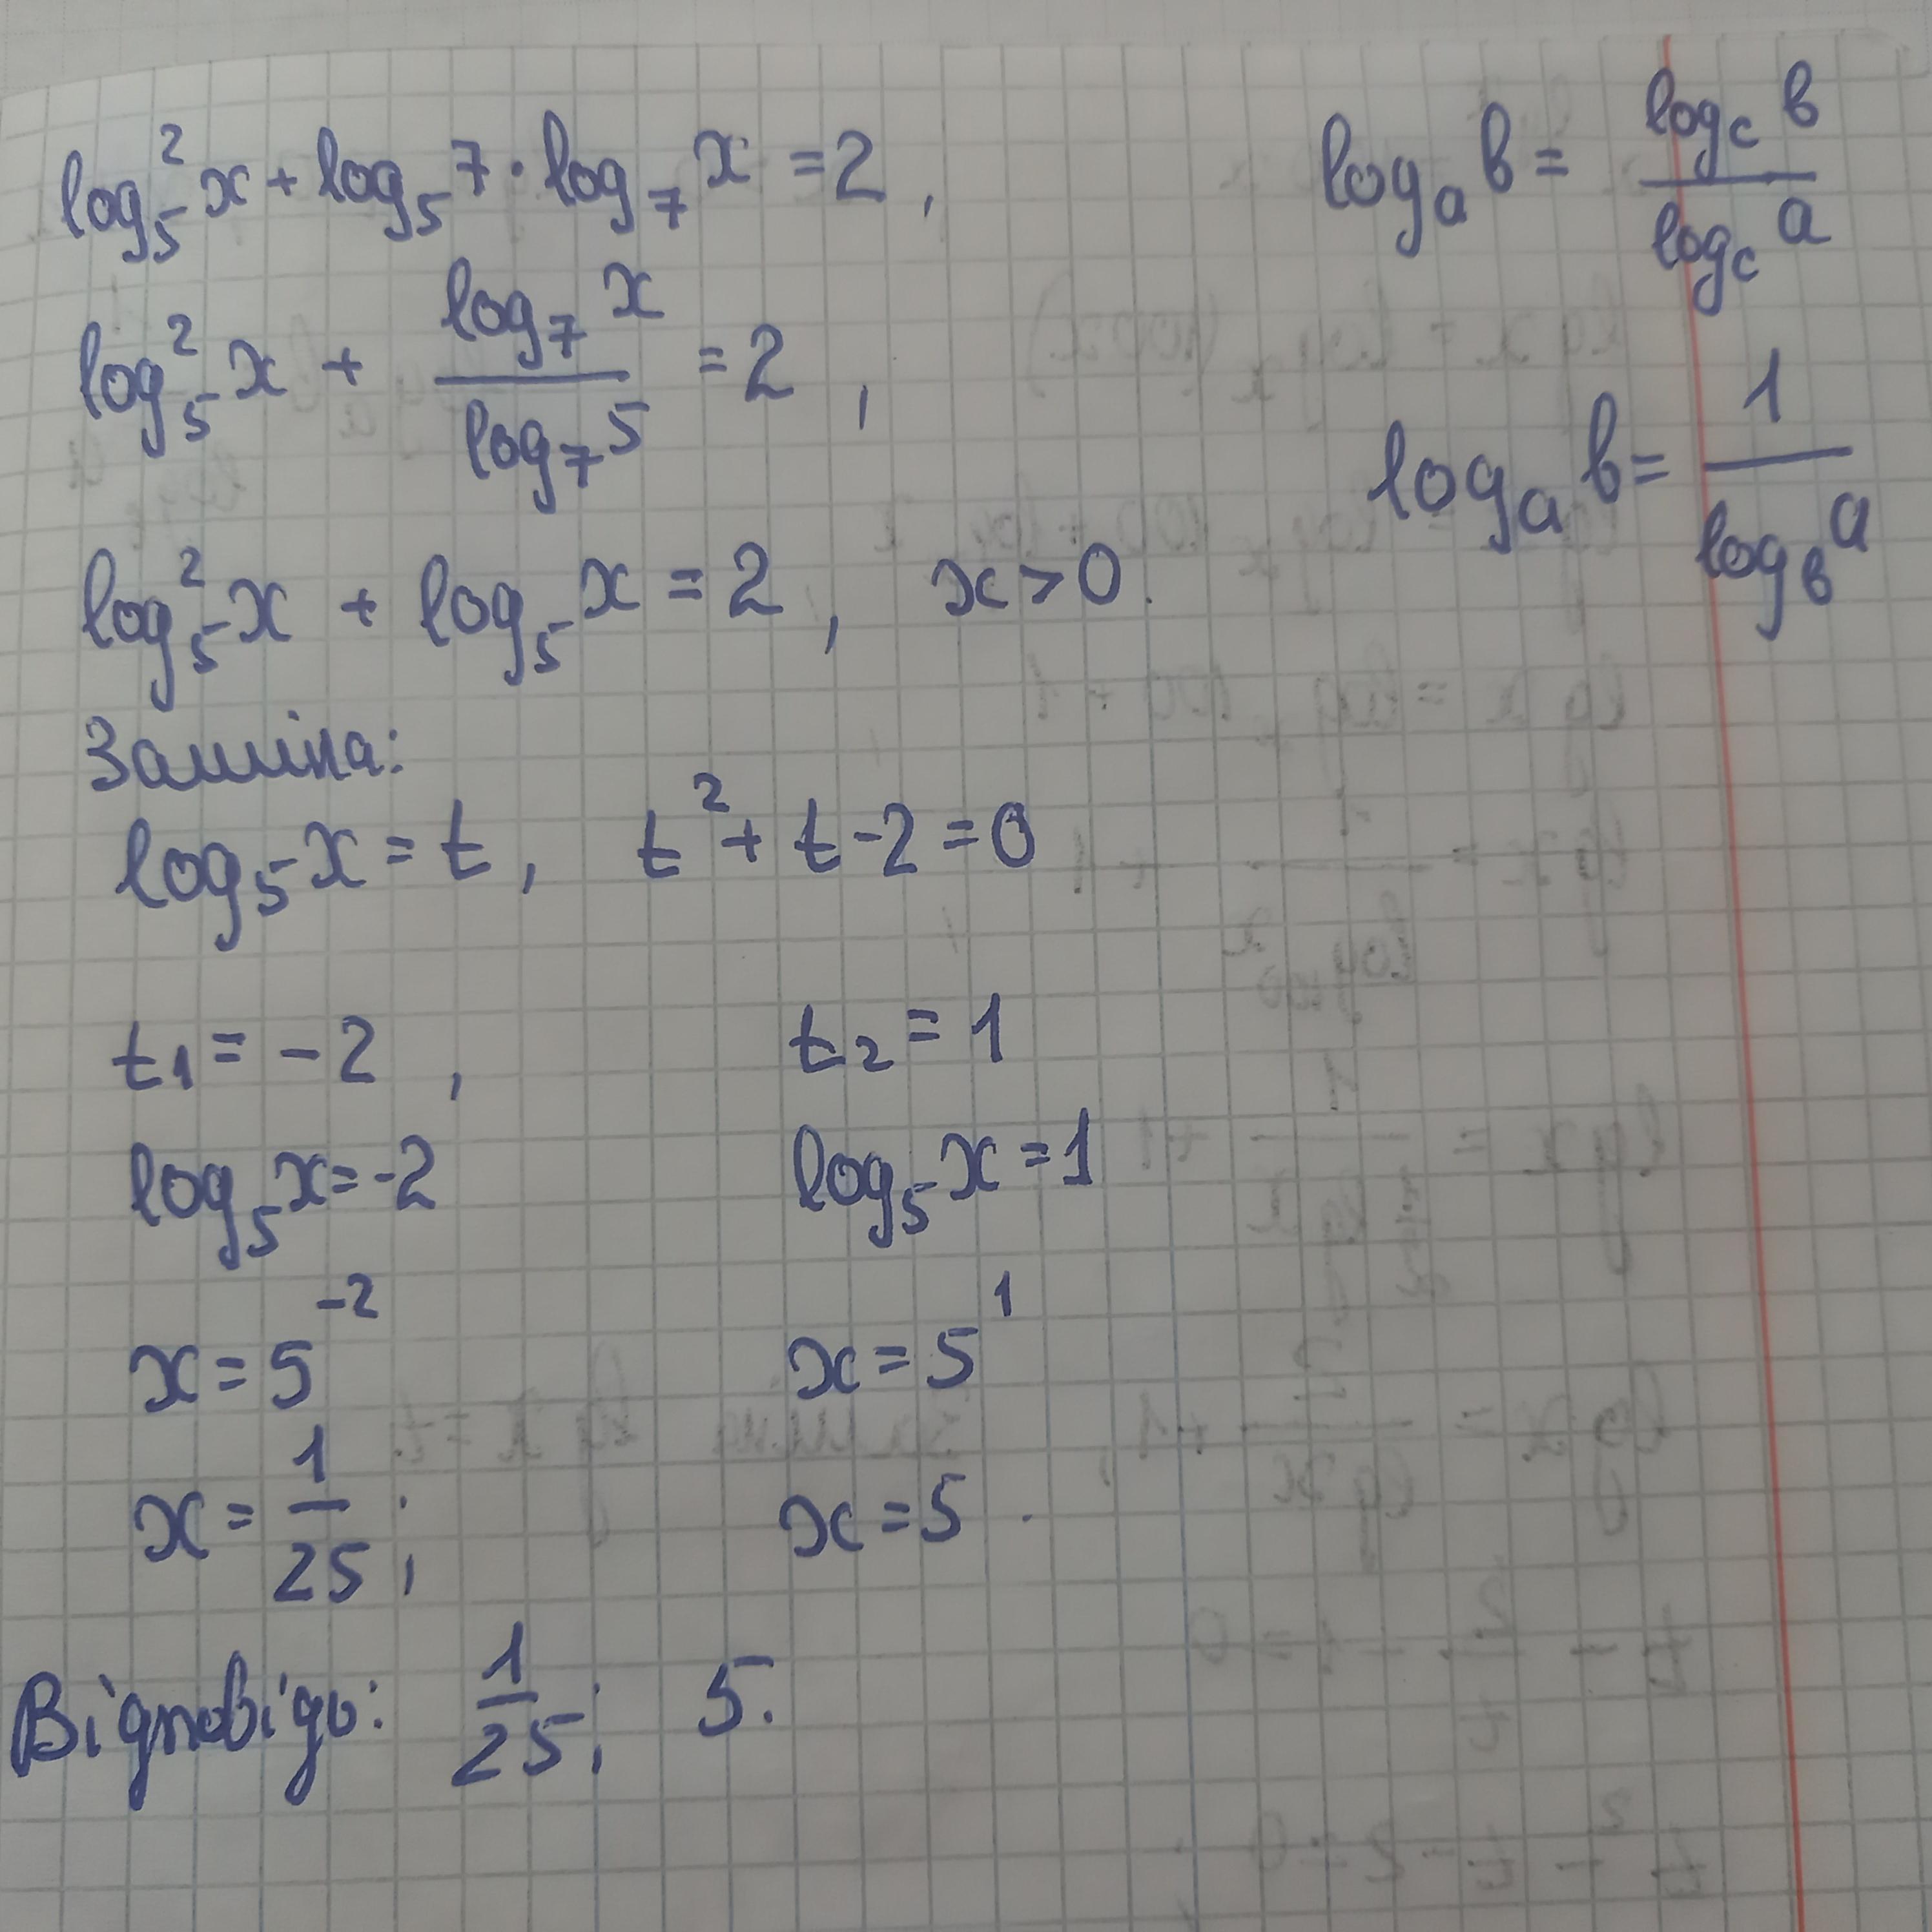 log₅²x + log₅7 · log₇x = 2,
log₅²x + log₇x / log₇5 = 2,
log₅²x + log₅x = 2, x > 0.
Заміна:
log₅x = t, t² + t - 2 = 0
t₁ = -2, t₂ = 1
log₅x = -2 log₅x = 1
x = 5⁻² x = 5¹
x = 1/25; x = 5.
Відповідь: 1/25; 5.
logₐ b = log_c b / log_c a
logₐ b = 1 / log_b a